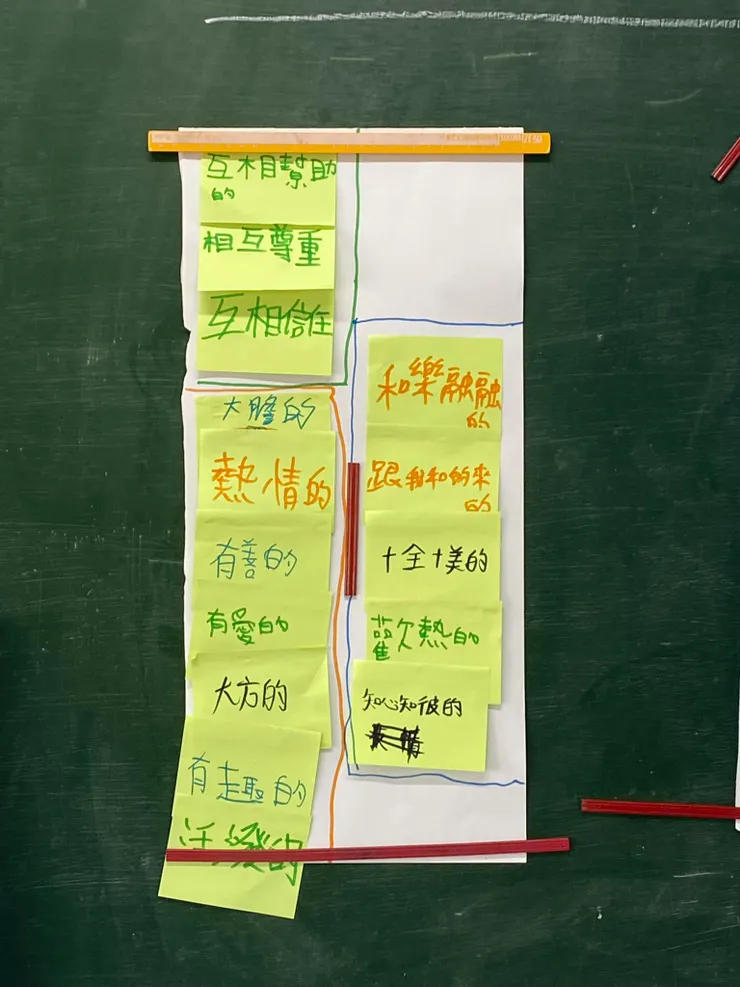 互相幫助
的
相互尊重
互相信任
大膽的
熱情的
有善的
有愛的
大方的
有趣的
活發的
和樂融融
的
跟我和的來
的
十全十美的
歡熱的
知心知彼的